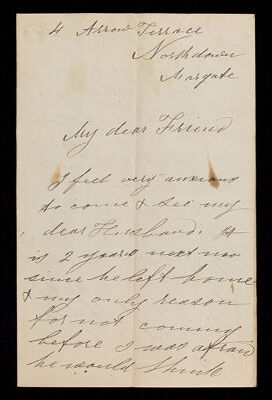 4 Arrow Terrace
Northdown
Margate
My dear Friend
I feel very anxious
to come & see my
dear Husband. It
is 2 years next
since he left home
& my only reason
for not coming
before I was afraid
he would think